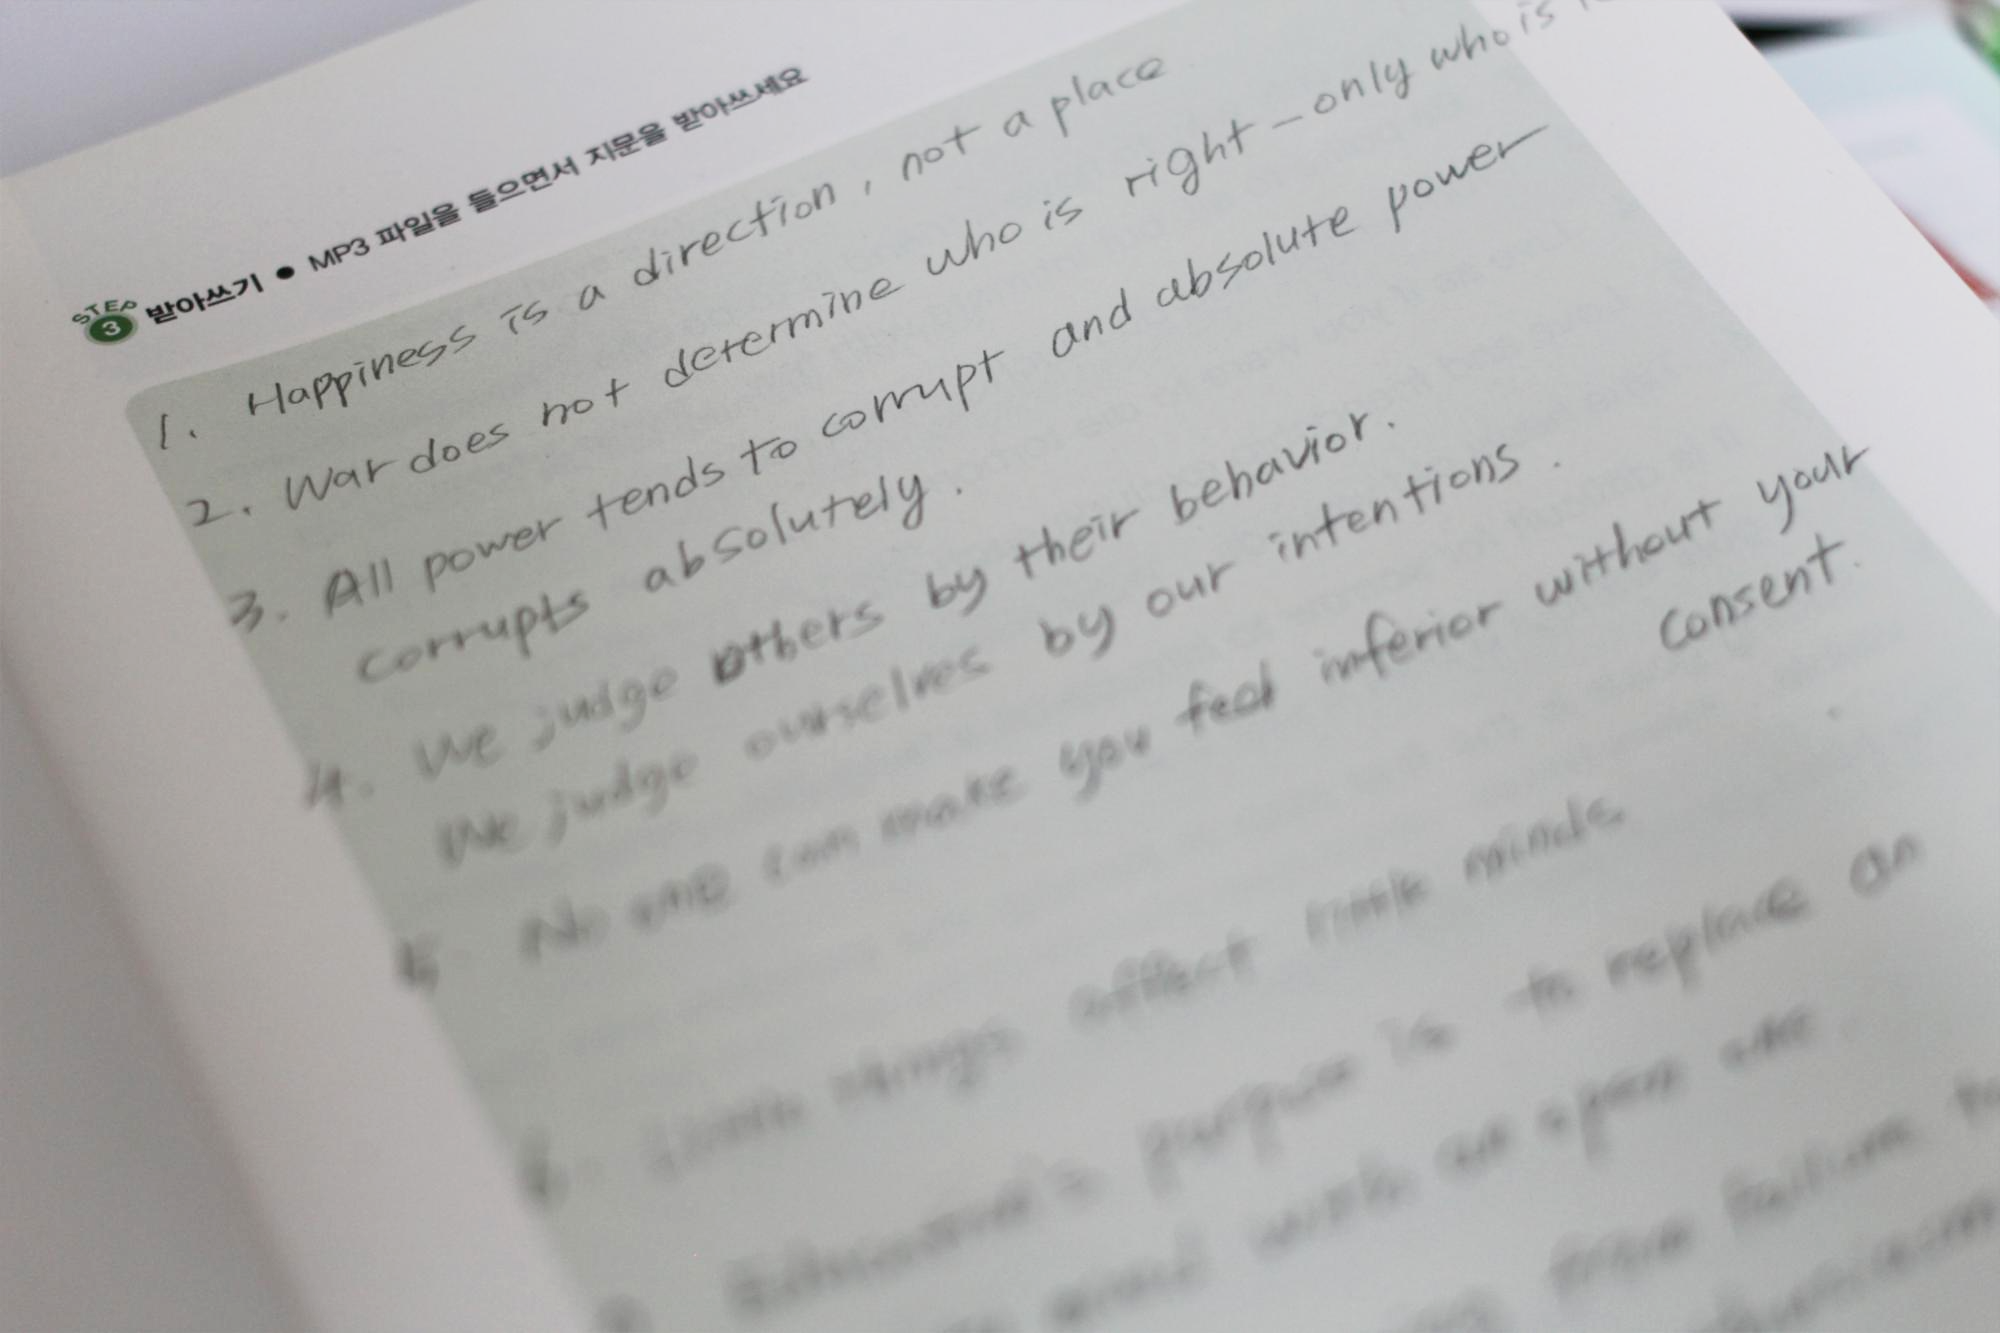 STEP 3 받아쓰기 ● MP3 파일을 들으면서 지문을 받아쓰세요
1. Happiness is a direction, not a place
2. War does not determine who is right - only who is
3. All power tends to corrupt and absolute power
corrupts absolutely.
4. We judge others by their behavior.
We judge ourselves by our intentions.
5 No one can make you feel inferior without your
consent.
6 Little things affect little minds
Education's purpose is to replace an
mind with an open one
from failure to
enthusiasm